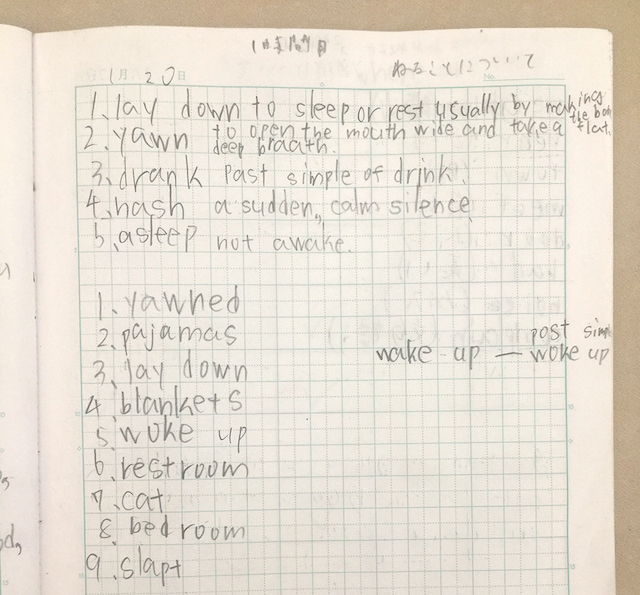 1時間目
1月 20日 ねることについて
No.
1. lay down to sleep or rest usually by makings the bo flat.
2. yawn to open the mouth wide and take a deep braath.
3. drank past simple of drink.
4. hash a sudden, calm silence
5. asleep not awake.
1. yawned
2. pajamas
3. lay down
4. blankets
5. woke up
6. restroom
7. cat
8. bedroom
9. slapt
post simp
wake up — woke up